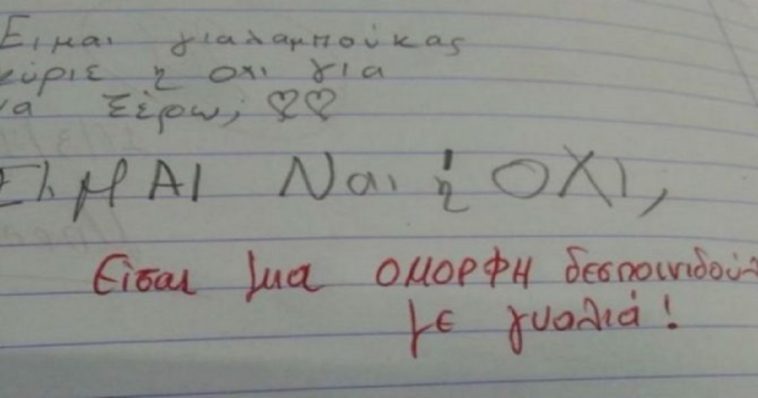 Ειμαι γιαλαμπούκας
κύριε η οχι για
να ξέρω; ♡♡
ΕΙΜΑΙ Ναι ή ΟΧΙ,
Είσαι μια ΟΜΟΡΦΗ δεσποινιδού
με γυαλιά!